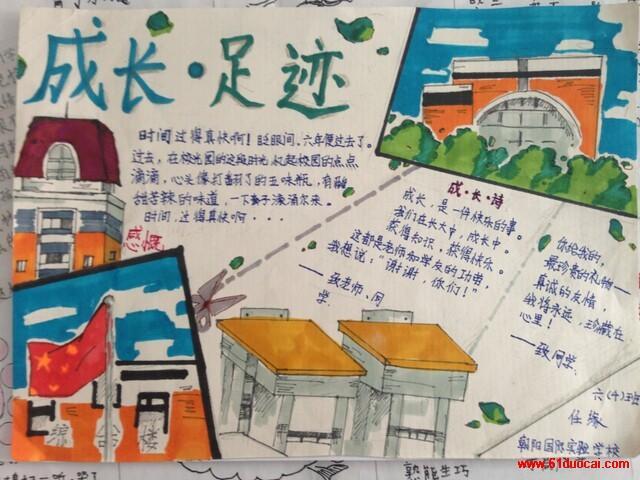 成长·足迹
时间过得真快啊！眨眼间，六年便过去了。
过去，在校园的这段时光
忆起校园的点点
滴滴，心头像打翻了的五味瓶，有酸
甜苦辣的味道，一下
涌
时间，过得真快啊···
感慨
成·长·诗
成长，是一件快乐的事。
我们在长大中，成长中。
获得知识，获得快乐。
这都是老师和学友的功劳，
我想说：“谢谢，你们！”
——致老师、同
学.
你给我的，
最珍贵的礼物——
真诚的友情，
我将永远，珍藏在
心里！
——致同学.
六(十)班
任
朝阳国际实验学校
楼
熟能生巧
www.51duocai.com